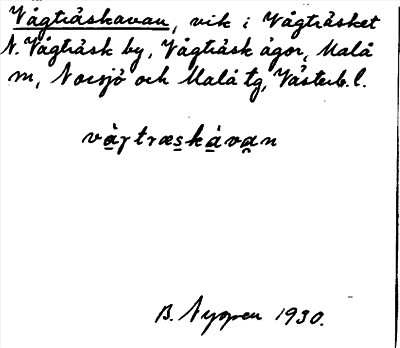 Vågträskavan, vik i Vågträsket
N. Vågträsk by, Vågträsk ägor, Malå
m, Norsjö och Malå tg, Västerb. l.
và̱ɼtræs̱ká̱va̱n
B. Nygren 1930.